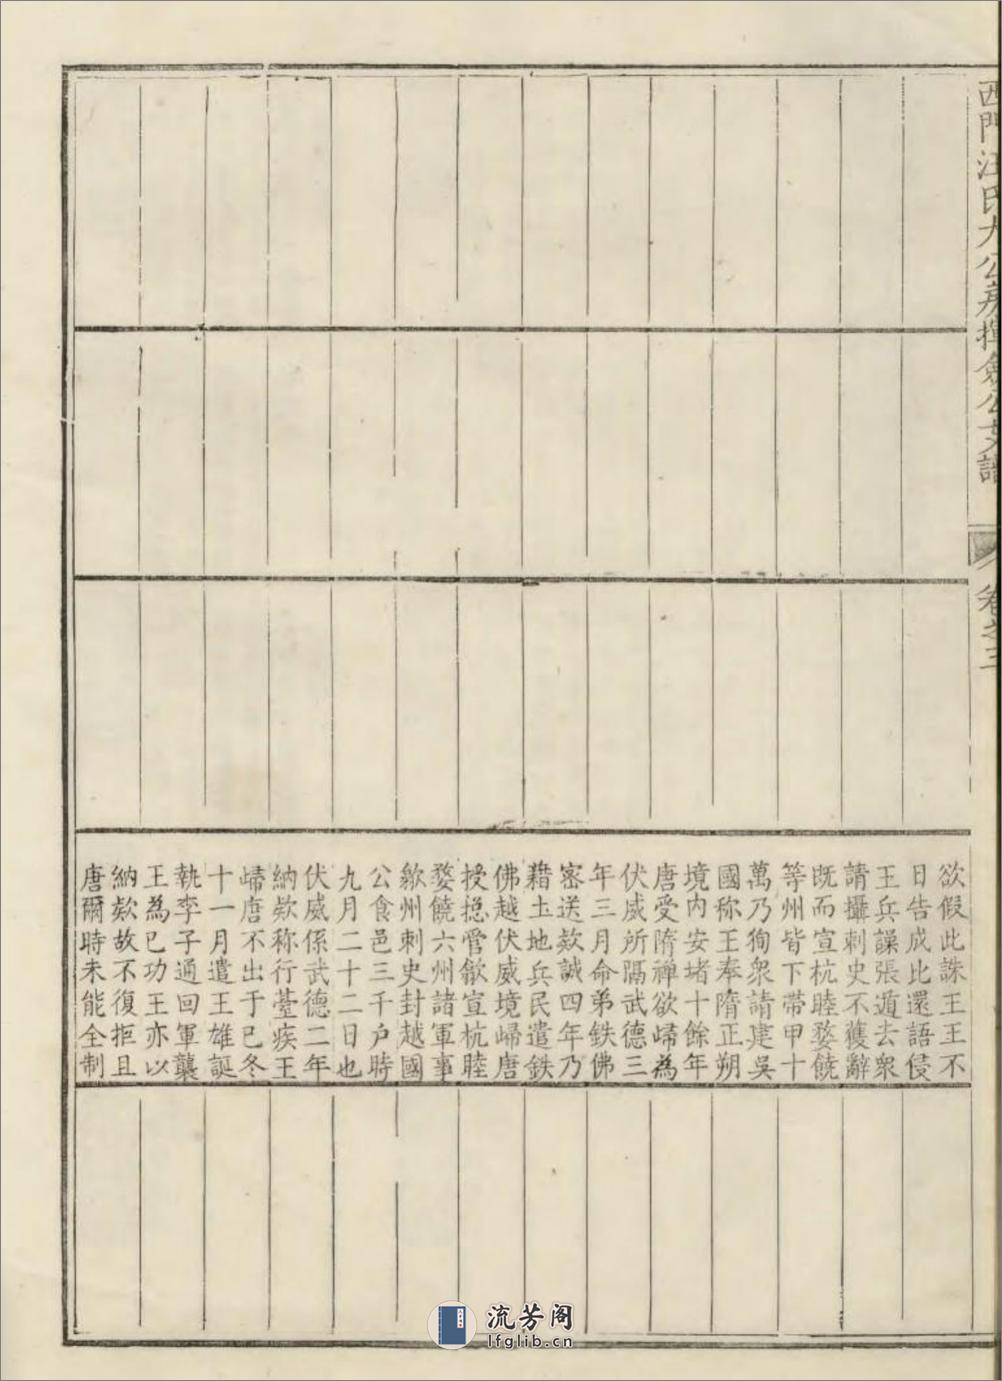 西門汪氏大公房揮僉公支譜 卷之三
欲假此誅王王不
日告成比還語侵
王兵譟張遁去衆
請攝刺史不獲辭
既而宣杭睦婺饒
等州皆下帶甲十
萬乃徇衆請建吳
國称王奉隋正朔
境内安堵十餘年
唐受隋禅欲歸為
伏威所隔武德三
年三月命弟鉄佛
密送欵誠四年乃
藉土地兵民遣鉄
佛越伏威境歸唐
授捴管歙宣杭睦
婺饒六州諸軍事
歙州刺史封越國
公食邑三千户時
九月二十二日也
伏威係武德二年
納欵称行䑓疾王
歸唐不出于已冬
十一月遣王雄誕
執李子通回軍襲
王為已功王亦以
納欵故不復拒且
唐爾時未能全制
流芳阁
lfglib.cn